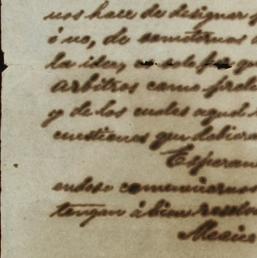 nos hace de designar
ó no, de someternos
la idea, 
arbitros como
y de los cuales aquel
cuestiones que debiera
Esperan
comunicarnos
tengan á bien resolv
Mexico